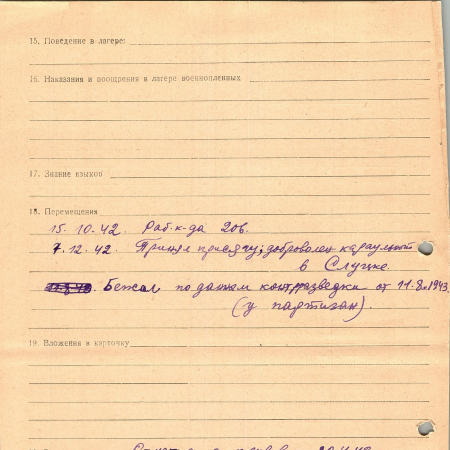 15. Поведение в лагере:
16. Наказания и поощрения в лагере военнопленных
17. Знание языков
18. Перемещения
15.10.42. Раб. к-да 206.
7.12.42. Принял присягу; доброволец караульный
в Слуцке.
Бежал по данным контрразведки от 11.8.1943
(у партизан).
19. Вложения в карточку